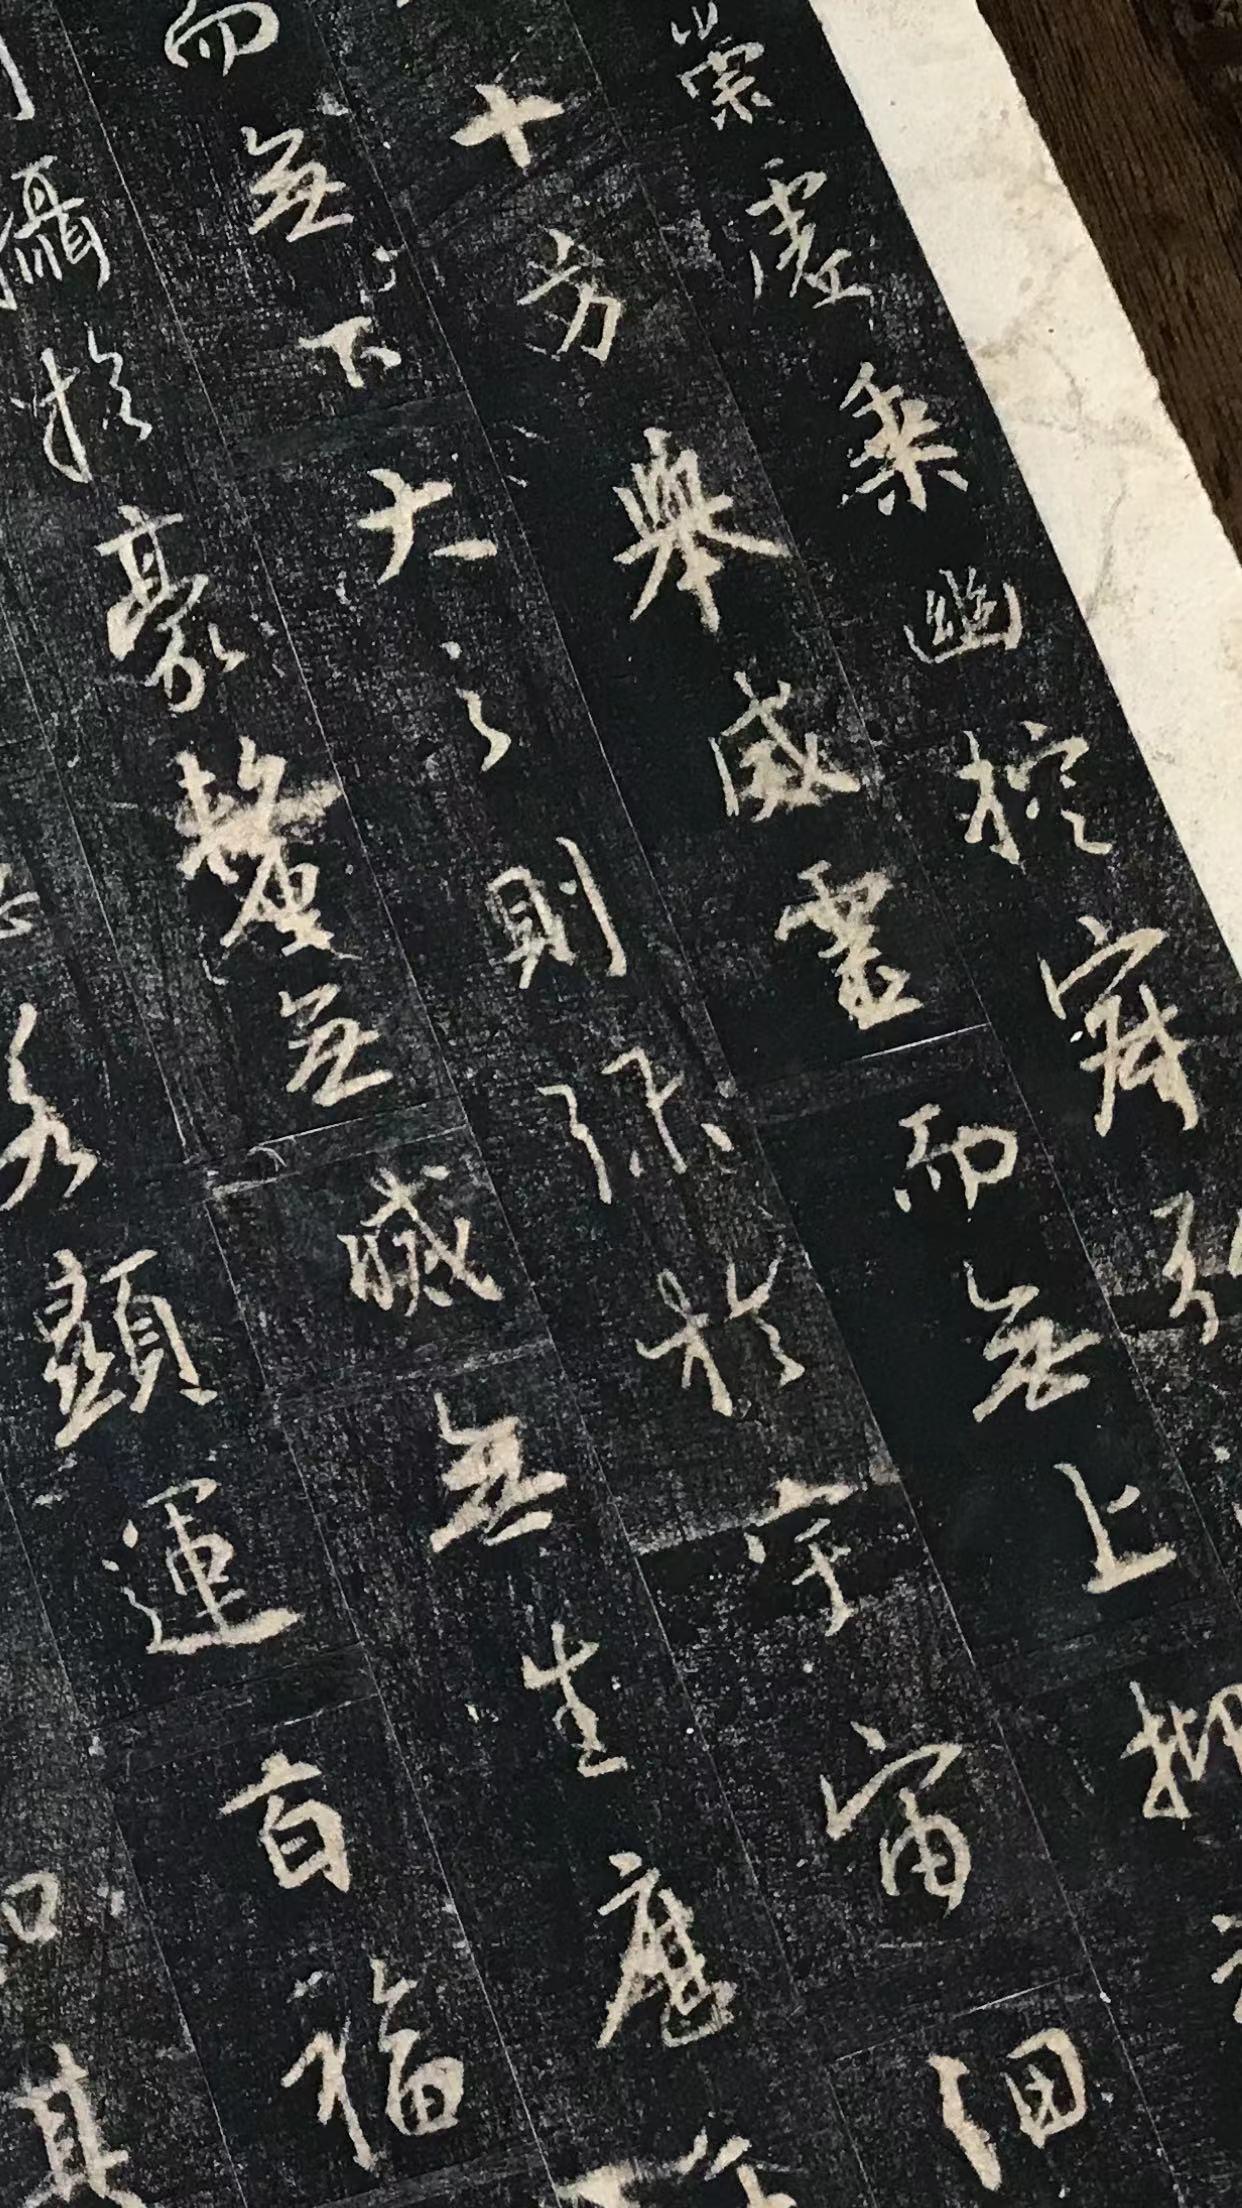 崇虛乘幽控寂弘
十方舉威靈而無上抑
而無下大之則彌於宇宙細
攝於豪釐無滅無生歷
若顯運百福
其